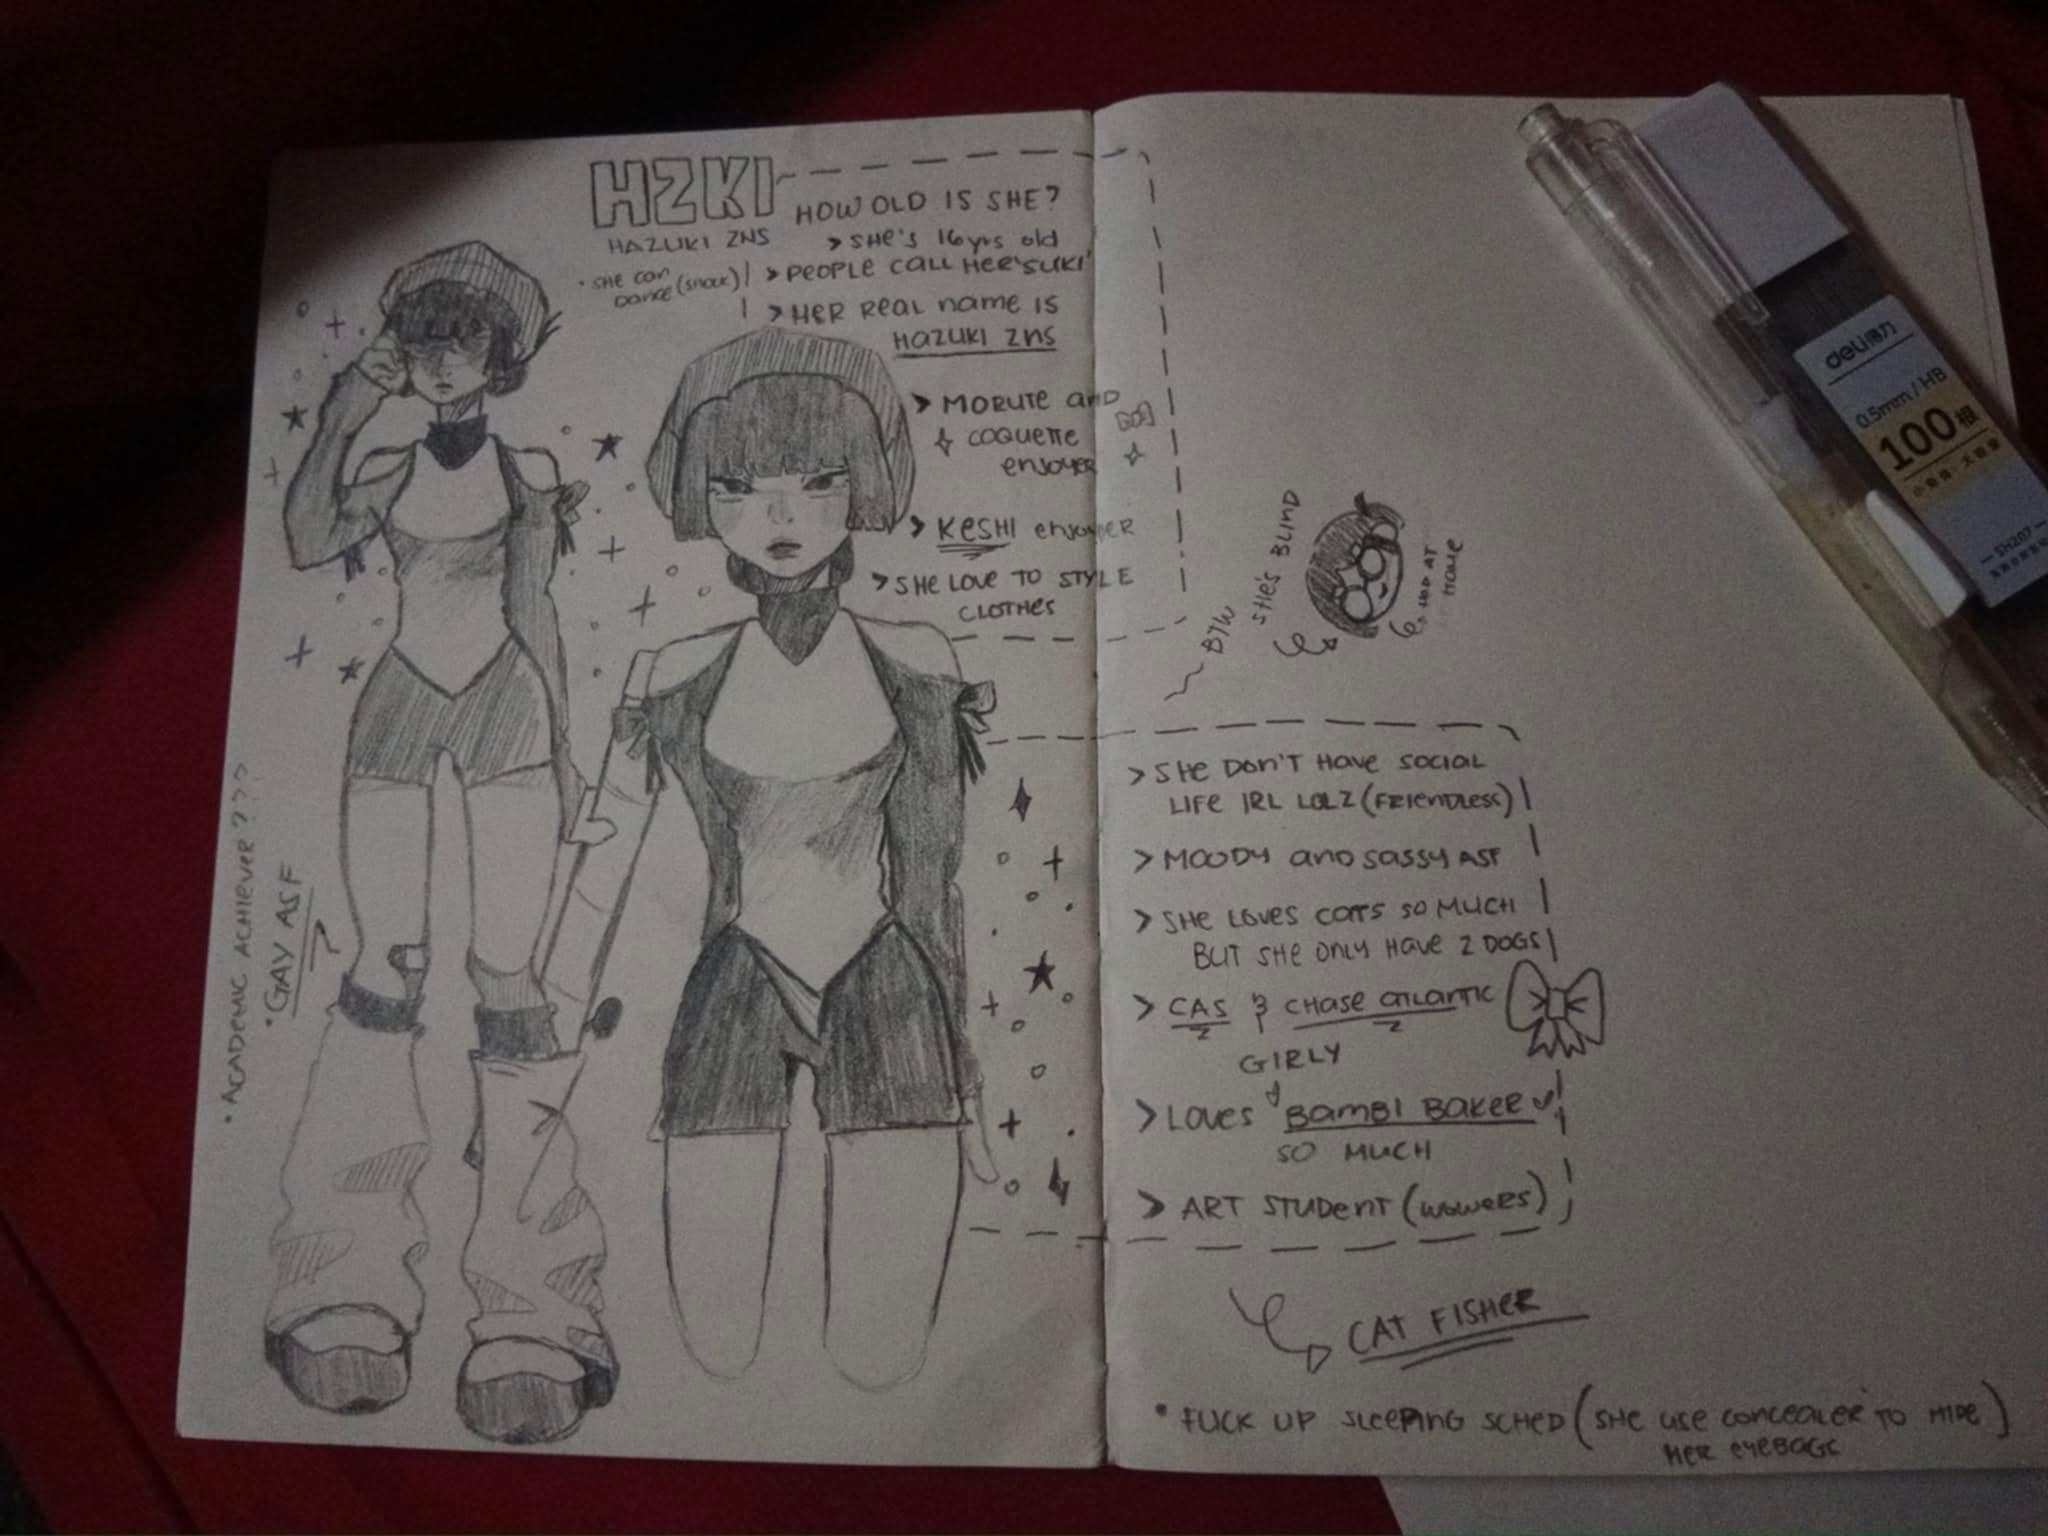 HZKI
HAZUKI ZNS
• SHE can
Dance (shock)
HOW OLD IS SHE?
> SHE'S 16 yrs old
> PEOPLE CALL HER 'SUKI'
> HER REAL NAME IS
HAZUKI ZNS
> MORUTE AND
COQUETTE
ENJOYER
> KESHI enjoyer
> SHE LOVE TO STYLE
CLOTHES
• ACADEMIC ACHIEVER????
• GAY ASF
BTW
SHE'S BLIND
AT
HOME
> SHE DON'T HAVE SOCIAL
LIFE IRL LOLZ (FRIENDLESS)
> MOODY and SASSY ASF
> SHE LOVES CATS SO MUCH
BUT SHE ONLY HAVE 2 DOGS
> CAS & CHASE ATLANTIC
GIRLY
> LOVES BAMBI BAKER
SO MUCH
> ART STUDENT (WOWERS)
CAT FISHER
• FUCK UP SLEEPING SCHED (SHE USE CONCEALER TO HIDE)
HER EYEBAGS
deli得力
0.5mm/HB
100根
SH207